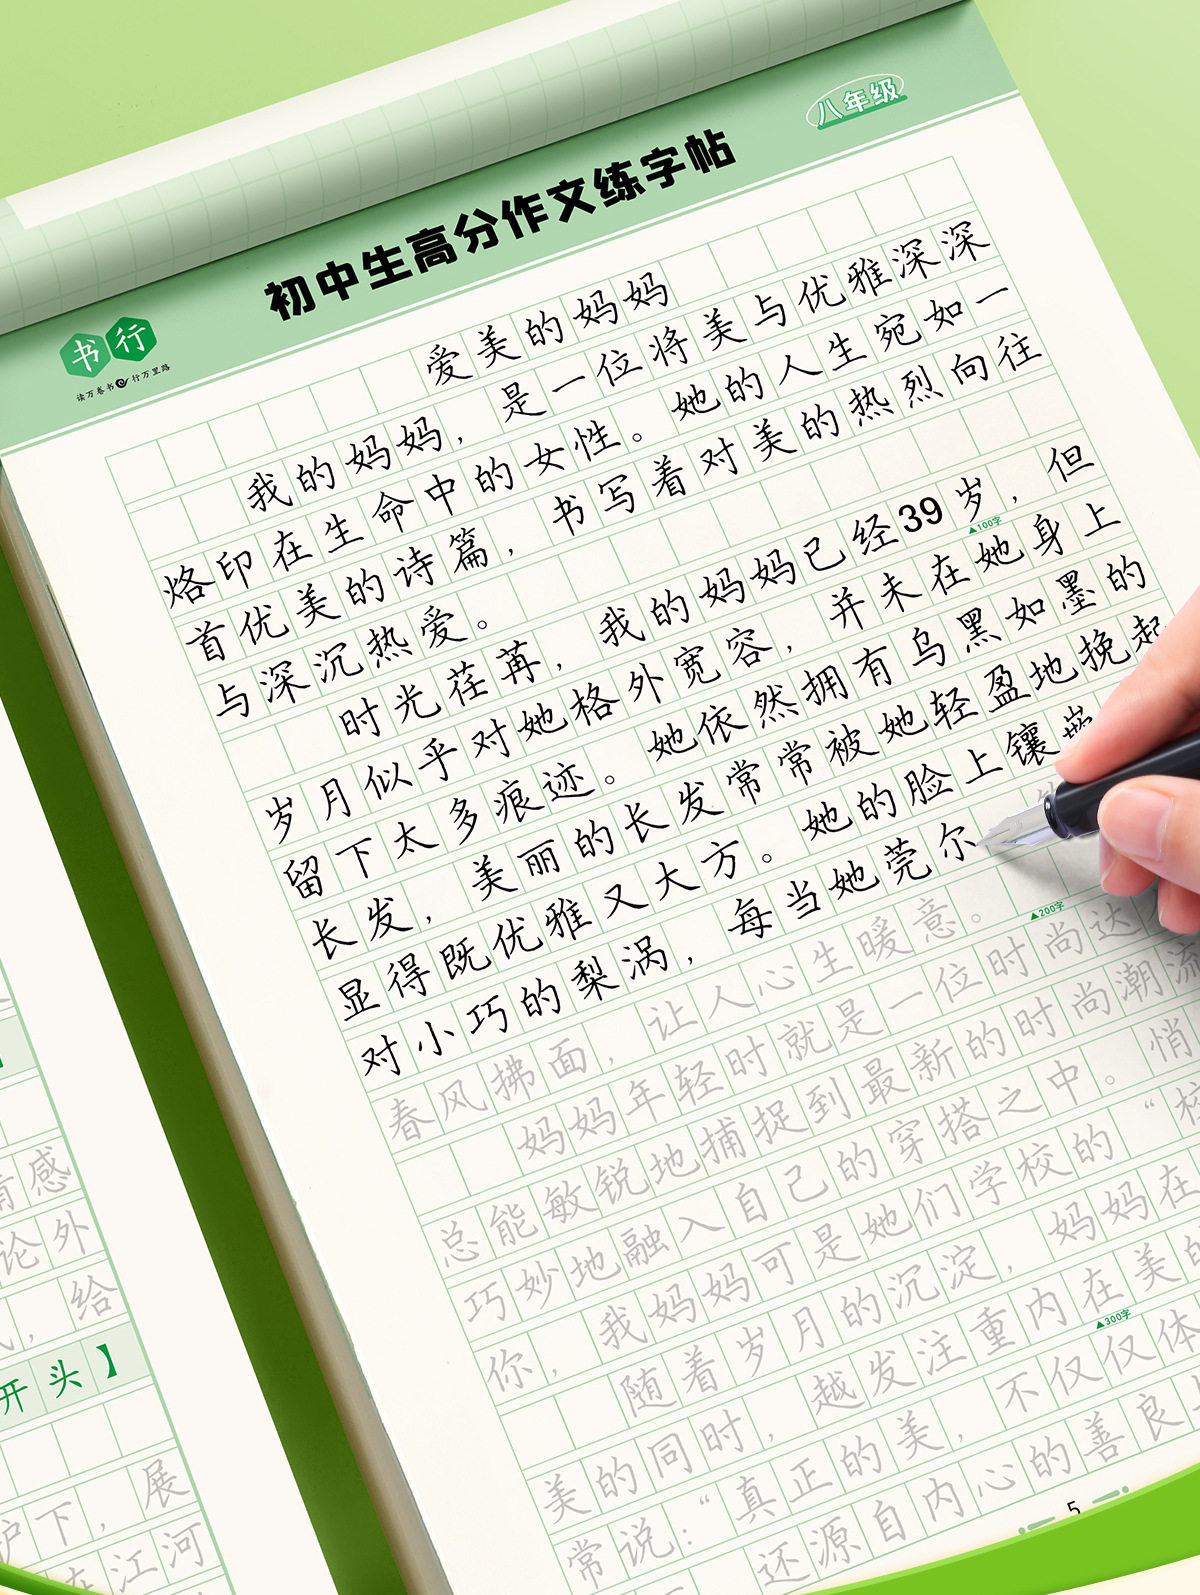 八年级
初中生高分作文练字帖
书行
读万卷书 行万里路
爱美的妈妈
我的妈妈，是一位将美与优雅深深
烙印在生命中的女性。她的人生宛如一
首优美的诗篇，书写着对美的热烈向往
与深沉热爱。
时光荏苒，我的妈妈已经39岁，但
▲100字
岁月似乎对她格外宽容，并未在她身上
留下太多痕迹。她依然拥有乌黑如墨的
长发，美丽的长发常常被她轻盈地挽起
显得既优雅又大方。她的脸上镶嵌
对小巧的梨涡，每当她莞尔
▲200字
春风拂面，让人心生暖意。
妈妈年轻时就是一位时尚达
总能敏锐地捕捉到最新的时尚潮流
巧妙地融入自己的穿搭之中。悄
你，我妈妈可是她们学校的“校
随着岁月的沉淀，妈妈在
美的同时，越发注重内在美的
▲300字
常说：“真正的美，不仅仅体
还源自内心的善良
5
】
情感
论外
，给
开头】
展
护下，
在江河